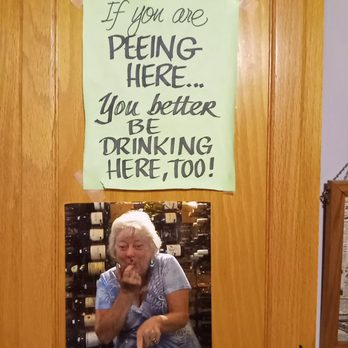 If you are
PEEING
HERE...
You better
BE
DRINKING
HERE, TOO!